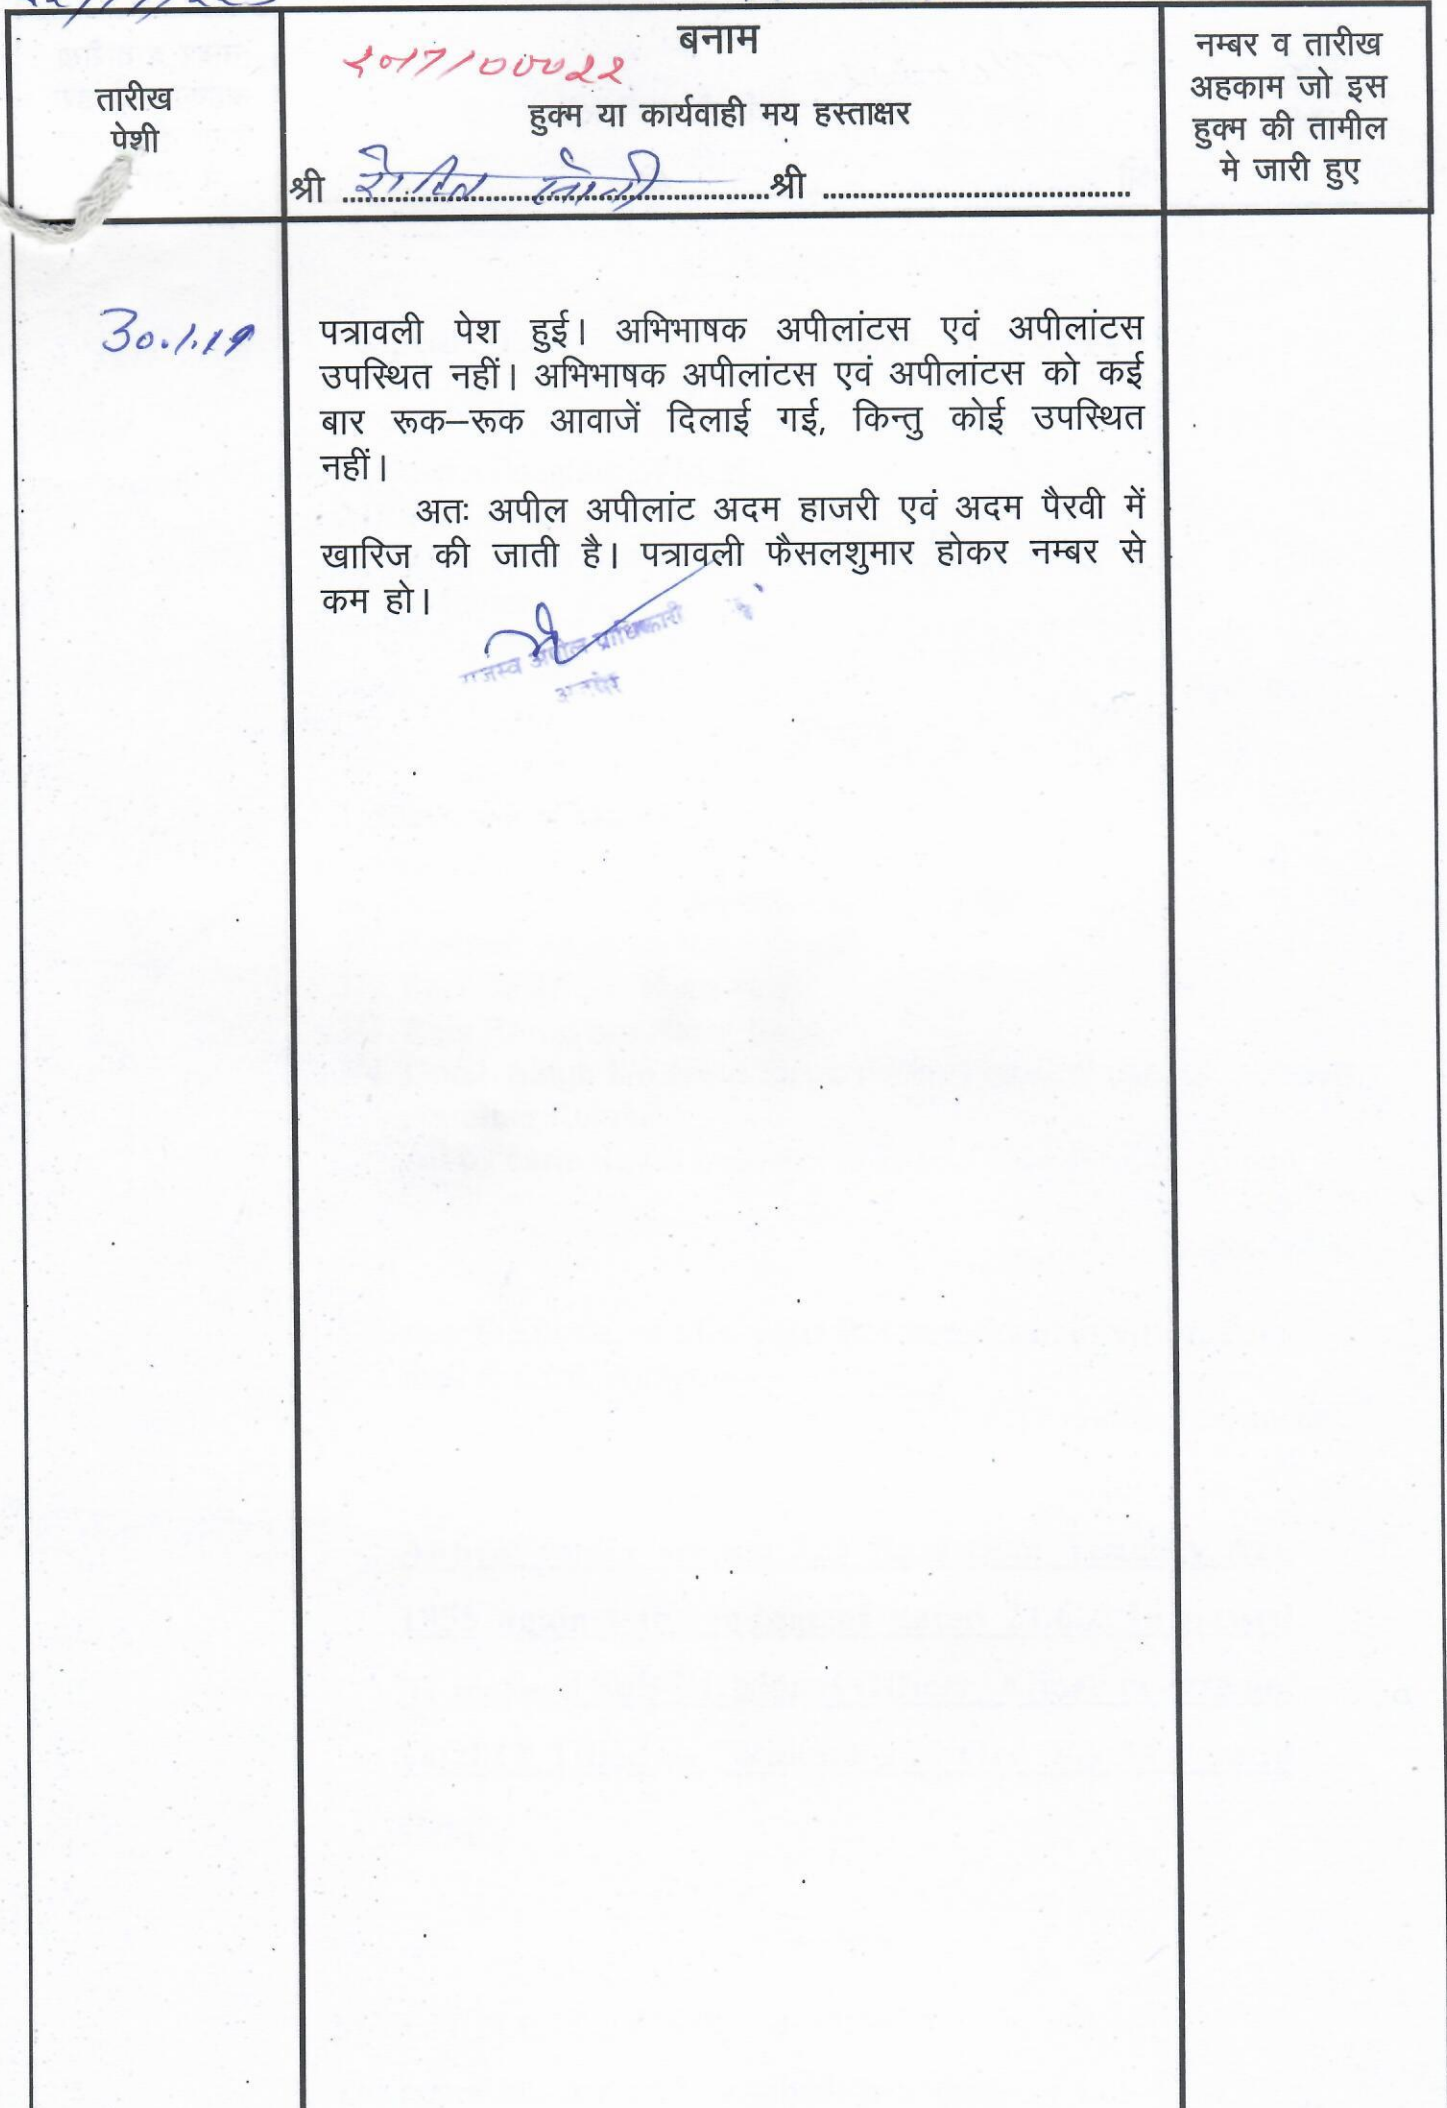 बनाम
2017/00022
तारीख
पेशी
हुक्म या कार्यवाही मय हस्ताक्षर
श्री ............ श्री ............
नम्बर व तारीख
अहकाम जो इस
हुक्म की तामील
मे जारी हुए
30.1.19
पत्रावली पेश हुई। अभिभाषक अपीलांटस एवं अपीलांटस
उपस्थित नहीं। अभिभाषक अपीलांटस एवं अपीलांटस को कई
बार रूक–रूक आवाजें दिलाई गई, किन्तु कोई उपस्थित
नहीं।
अतः अपील अपीलांट अदम हाजरी एवं अदम पैरवी में
खारिज की जाती है। पत्रावली फैसलशुमार होकर नम्बर से
कम हो।
राजस्व अपील प्राधिकारी